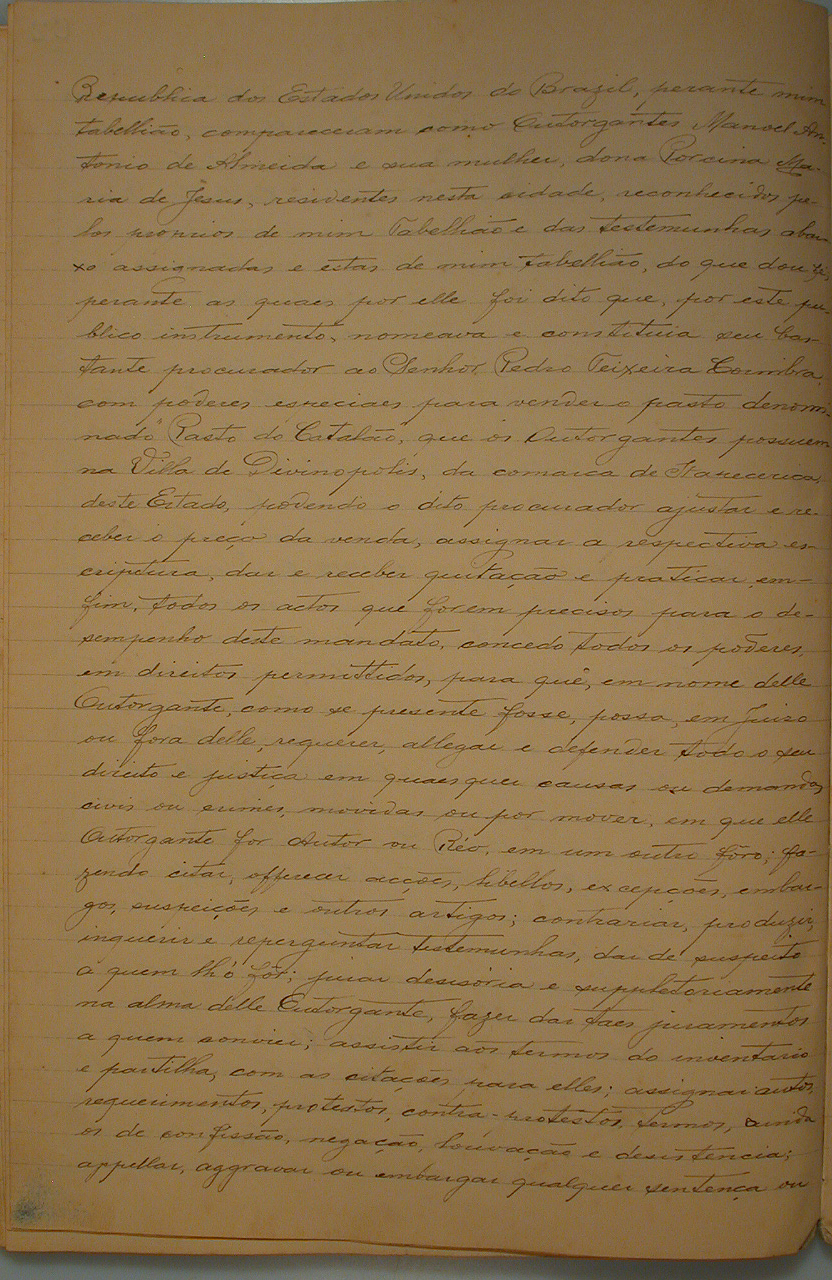 Republica dos Estados Unidos do Brazil, perante mim
tabellião, compareceram como Outorgantes Manoel An-
tonio de Almeida e sua mulher, dona Porcina Ma-
ria de Jesus, residentes nesta cidade, reconhecidos pe-
los proprios de mim Tabellião e das testemunhas abai-
xo assignadas e estas de mim tabellião, do que dou fé,
perante as quaes por elle foi dito que, por este pu-
blico instrumento, nomeava e constituia seu bas-
tante procurador ao Senhor Pedro Teixeira Coimbra,
com poderes especiaes para vender o pasto denomi-
nado "Pasto do Catalão", que os Outorgantes possuem
na Villa de Divinopolis, da comarca de Itapecerica,
deste Estado, podendo o dito procurador ajustar e re-
ceber o preço da venda, assignar a respectiva es-
criptura, dar e receber quitação e praticar, em-
fim, todos os actos que forem precisos para o de-
sempenho deste mandato, concedo todos os poderes,
em direitos permittidos, para que, em nome delle
Outorgante, como se presente fosse, possa, em Juiso
ou fora delle, requerer, allegar e defender todo o seu
direito e justiça em quaesquer causas ou demandas
civis ou crimes, movidas ou por mover, em que elle
Outorgante for Autor ou Réo, em um outro fôro; fa-
zendo citar, offerecer acções, libellos, excepções, embar-
gos, suspeições e outros artigos; contrariar, produzir,
inquerir e reperguntar testemunhas, dar de suspeito
a quem lh'o fôr; jurar desisória e suppletoriamente
na alma delle Outorgante, fazer dar taes juramentos
a quem convier; assistir aos termos do inventario
e partilha, com as citações para elles; assignar autos,
requerimentos, protestos, contra-protestos, termos, ainda
os de confissão, negação, louvação e desistencia;
appellar, aggravar ou embargar qualquer sentença ou